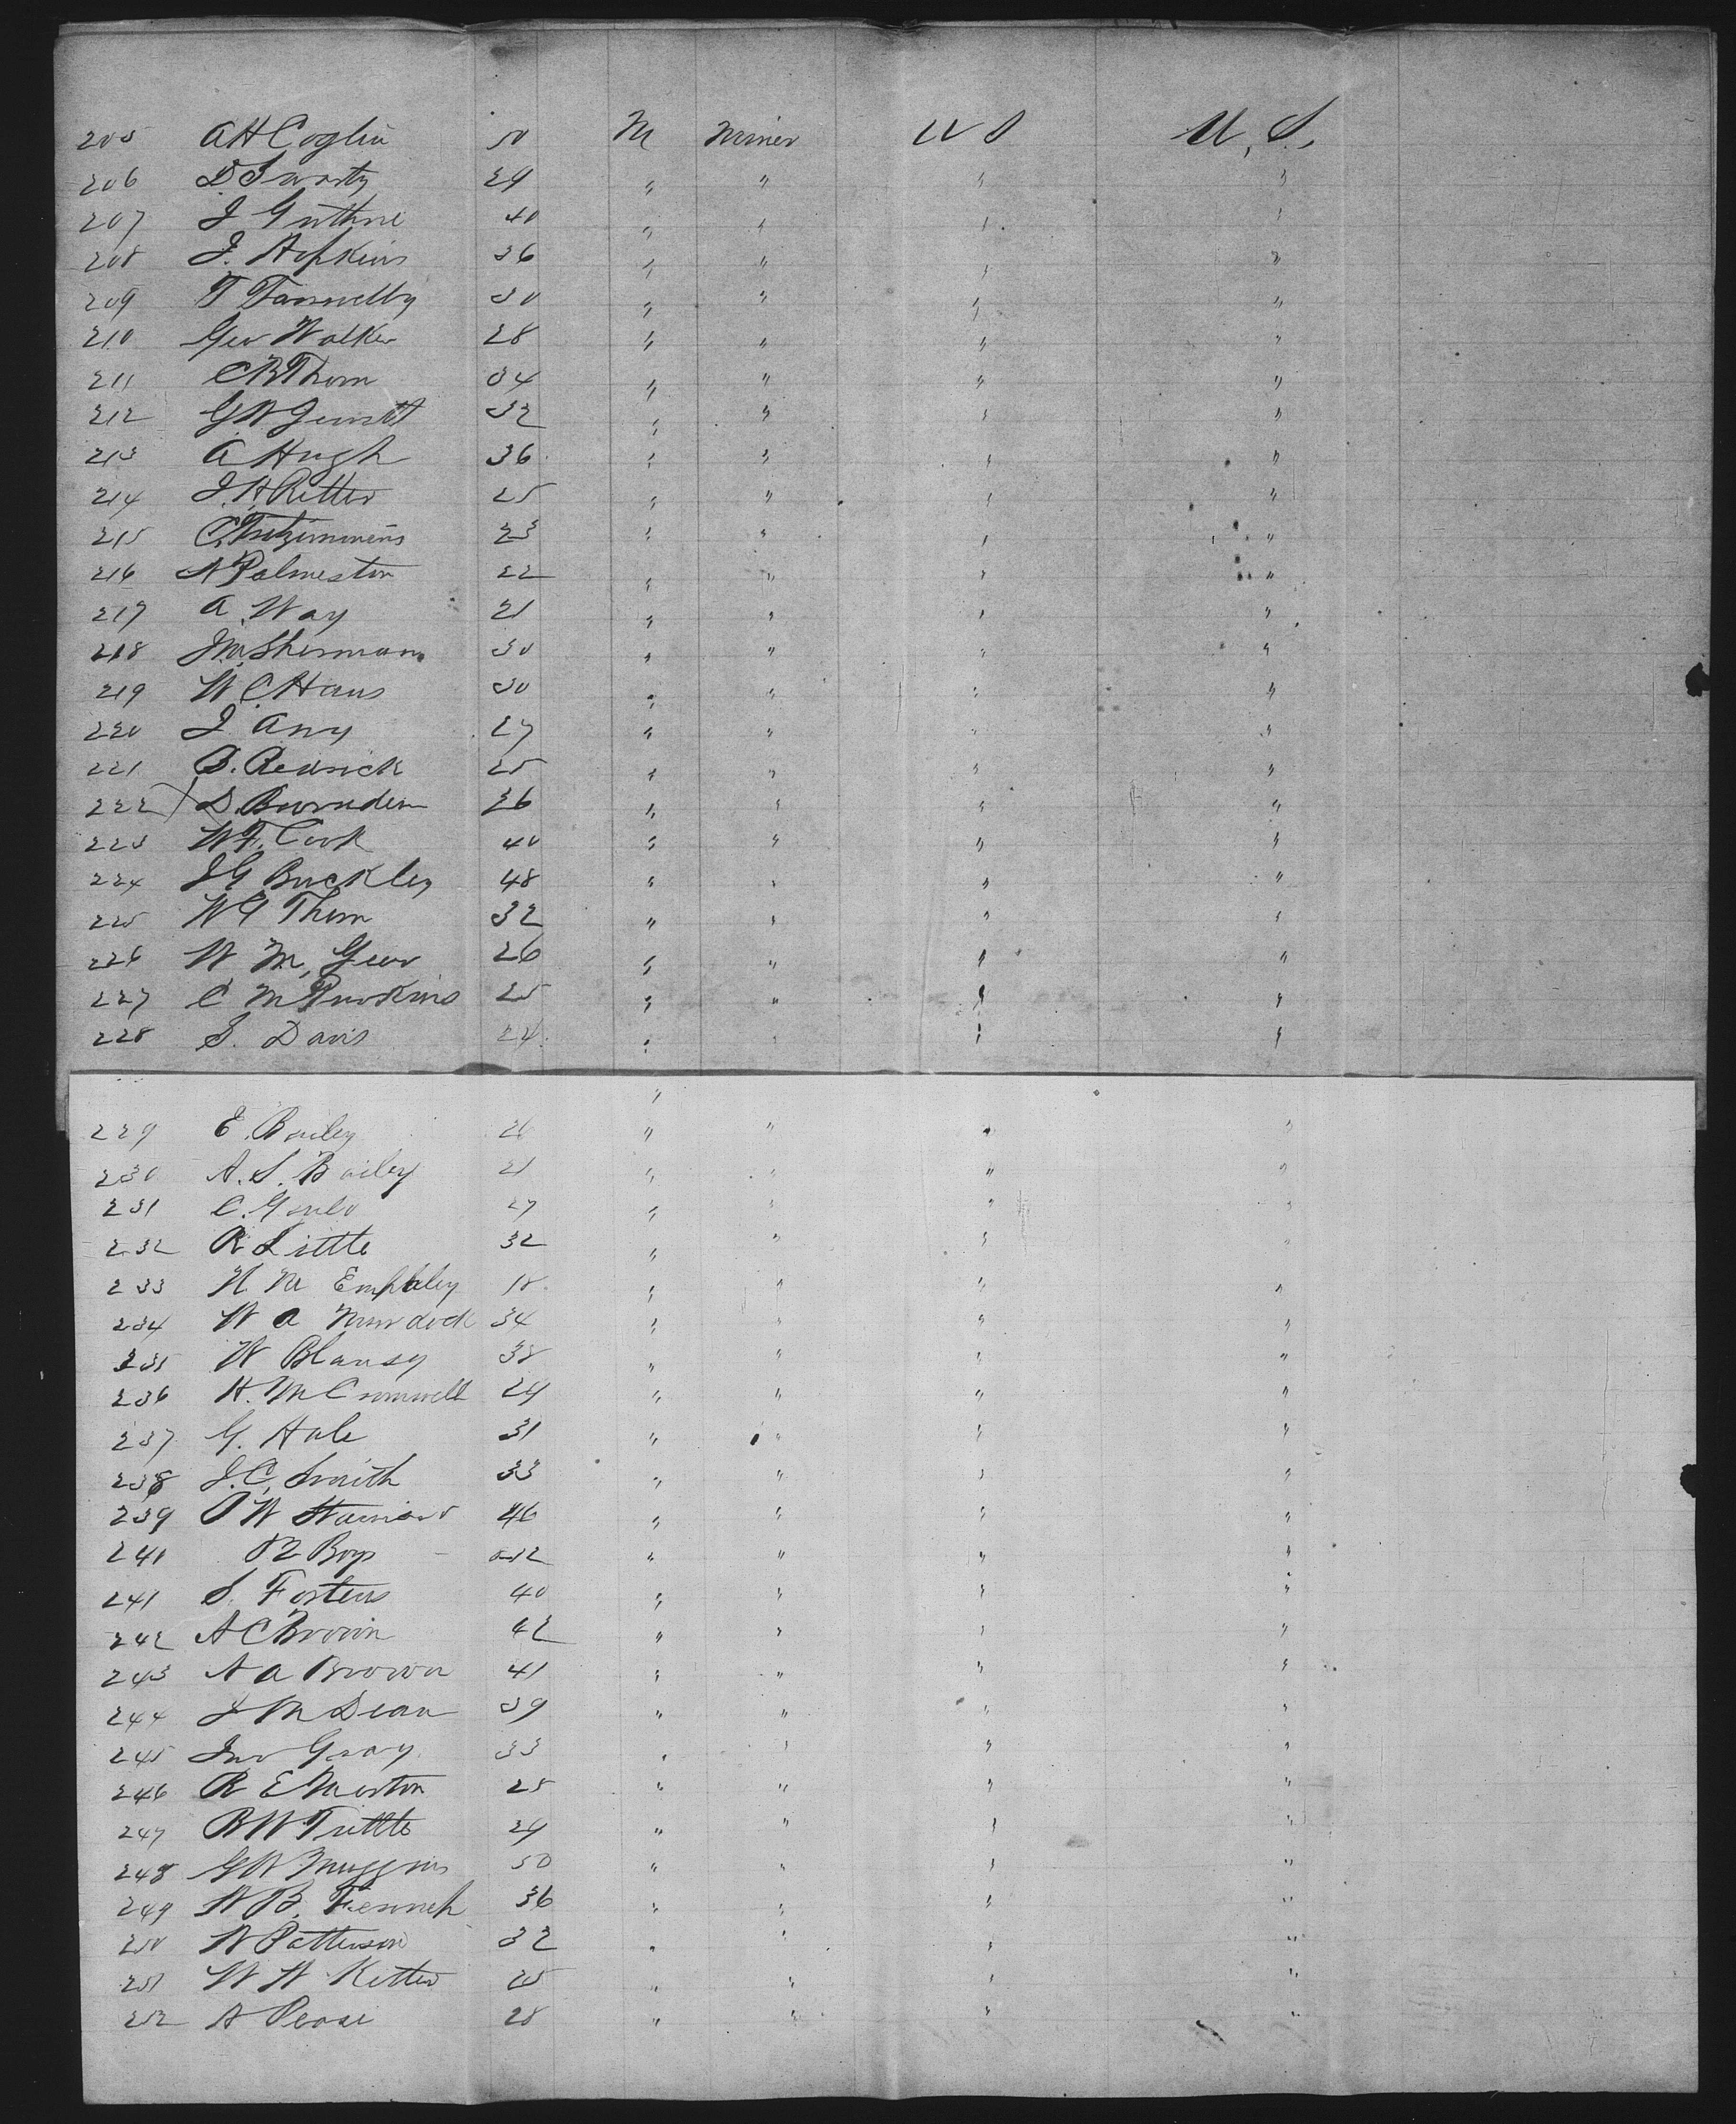 205 A H Coglin 50 M Miner U S U. S.
206 D. Swarty 29 " " " "
207 J Guthrie 40 " " " "
208 J. Hopkins 36 " " " "
209 T 30 " " " "
210 Geo Walker 28 " " " "
211 C B Thom 34 " " " "
212 G W 32 " " " "
213 A Hugh 36 " " " "
214 J. H. Ritter 25 " " " "
215 C. Fitzimmens 23 " " " "
216 N Palmeston 22 " " " "
217 A. Way 21 " " " "
218 J M. Sherman 30 " " " "
219 W. C. Haus 30 " " " "
220 J. Any 27 " " " "
221 B. Redrick 25 " " " "
222 D. 26 " " " "
223 W F. Cook 40 " " " "
224 J G Buckley 48 " " " "
225 W G Thom 32 " " " "
226 W M. Geer 26 " " " "
227 C M 25 " " " "
228 S. Davis 24 " " " "
" "
229 E. Bailey 26 " " " "
230 A. S. Bailey 21 " " " "
231 C. Gould 27 " " " "
232 R Little 32 " " " "
233 N. M Emphley 18 " " " "
234 W A Murdock 34 " " " "
235 W Blansy 38 " " " "
236 H. M Cromwell 29 " " " "
237 G. Hale 31 " " " "
238 J. C. Smith 33 " " " "
239 O W 46 " " " "
240 R Boys 32 " " " "
241 S. Fosters 40 " " " "
242 A C Brown 42 " " " "
243 A A Brown 41 " " " "
244 J M Dean 39 " " " "
245 Jno Gray 33 " " " "
246 R E Morton 25 " " " "
247 B W Tuttle 29 " " " "
248 G W Muggins 50 " " " "
249 W B. 36 " " " "
250 W Patterson 32 " " " "
251 W W Ketter 25 " " " "
252 A Pease 28 " " " "